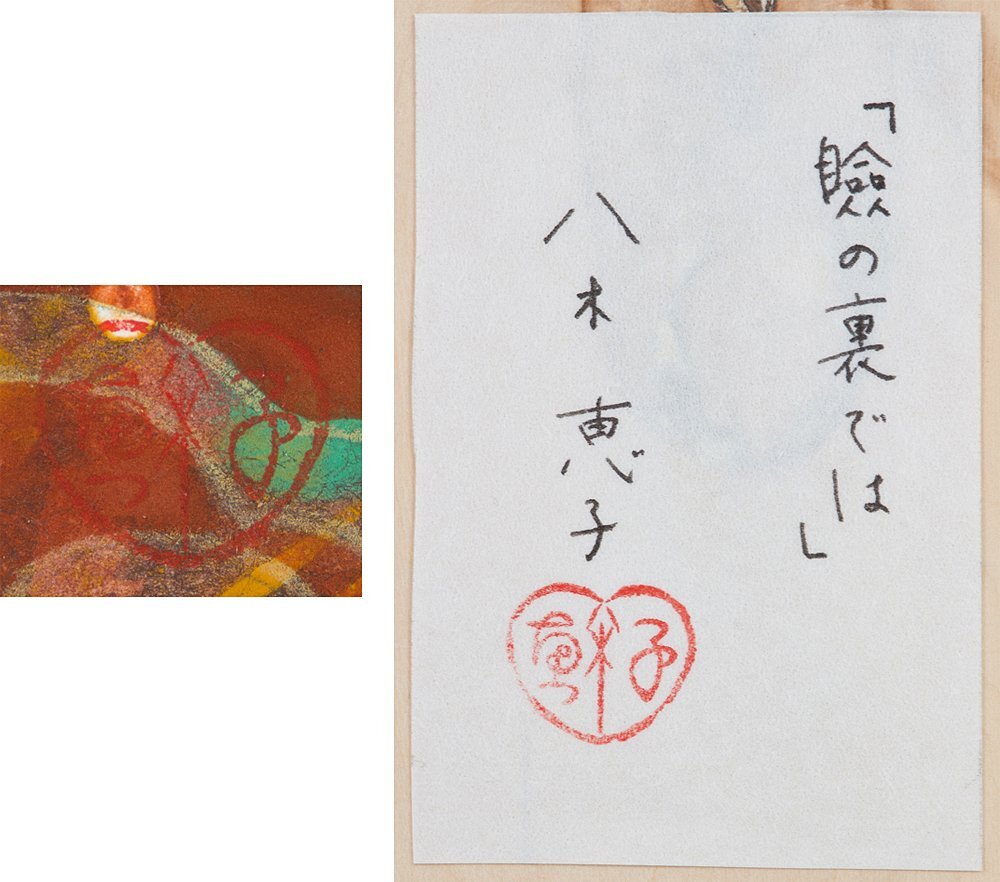 「瞼の裏では」
八木恵子